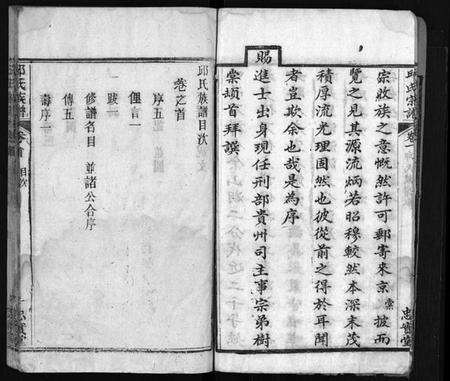 邱氏宗譜 卷一
忠實堂
宗收族之意慨然許可郵寄來京棠披而
覽之見其源流炳若昭穆較然本深末茂
積厚流光理固然也彼從前之得於耳聞
者豈欺余也哉是為序
賜進士出身現任刑部貴州司主事宗弟樹
棠頓首拜譔
邱氏族譜目次
卷之首
序五
俚言一
跋一
修譜名目 並諸公合序
傳五
壽序一
邱氏族譜 卷首 目次